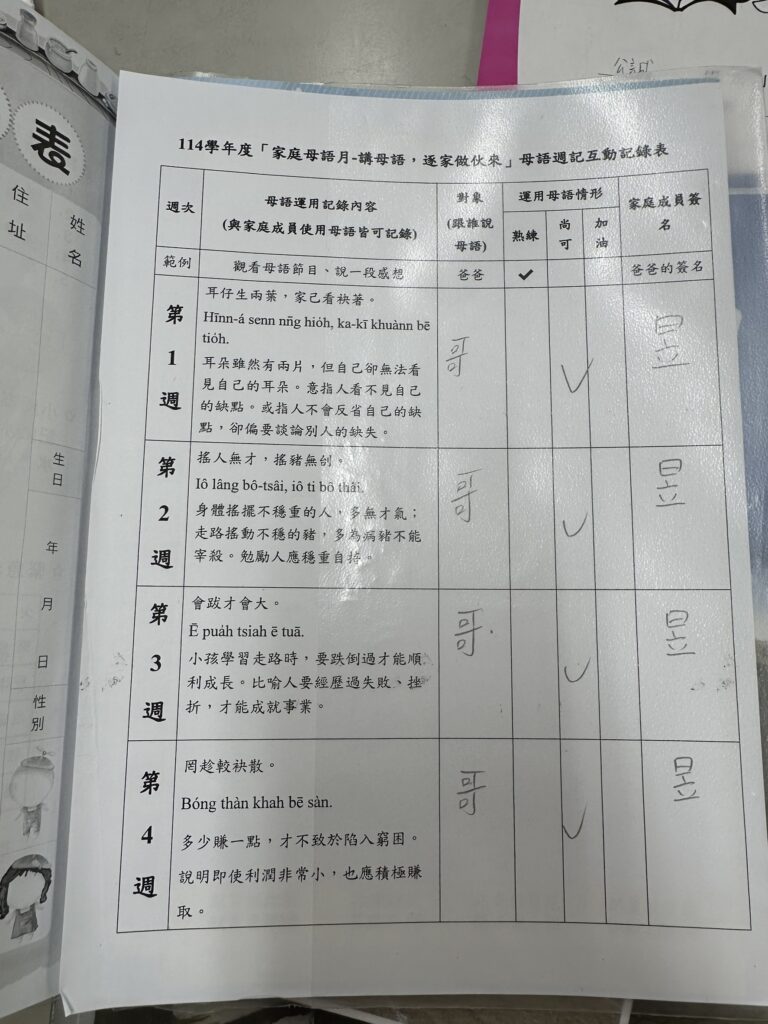 公試
表
姓名
住址
生日
年
月
日
性別
114學年度「家庭母語月-講母語，逐家做伙來」母語週記互動記錄表
週次 母語運用記錄內容 (與家庭成員使用母語皆可記錄) 對象 (跟誰說母語) 運用母語情形 熟練 尚可 加油 家庭成員簽名
範例 觀看母語節目、說一段感想 爸爸 ✔ 爸爸的簽名
第1週
耳仔生兩葉，家己看袂著。
Hīnn-á senn nn̄g hio̍h, ka-kī khuànn bē
tio̍h.
耳朵雖然有兩片，但自己卻無法看
見自己的耳朵。意指人看不見自己
的缺點。或指人不會反省自己的缺
點，卻偏要談論別人的缺失。
哥 ✓ 昱
第2週
搖人無才，搖豬無刣。
Iô lâng bô-tsâi, iô ti bô thâi.
身體搖擺不穩重的人，多無才氣；
走路搖動不穩的豬，多為病豬不能
宰殺。勉勵人應穩重自持。
哥 ✓ 昱
第3週
會跋才會大。
Ē pua̍h tsiah ē tuā.
小孩學習走路時，要跌倒過才能順
利成長。比喻人要經歷過失敗、挫
折，才能成就事業。
哥. ✓ 昱
第4週
罔趁較袂散。
Bóng thàn khah bē sàn.
多少賺一點，才不致於陷入窮困。
說明即使利潤非常小，也應積極賺
取。
哥 ✓ 昱